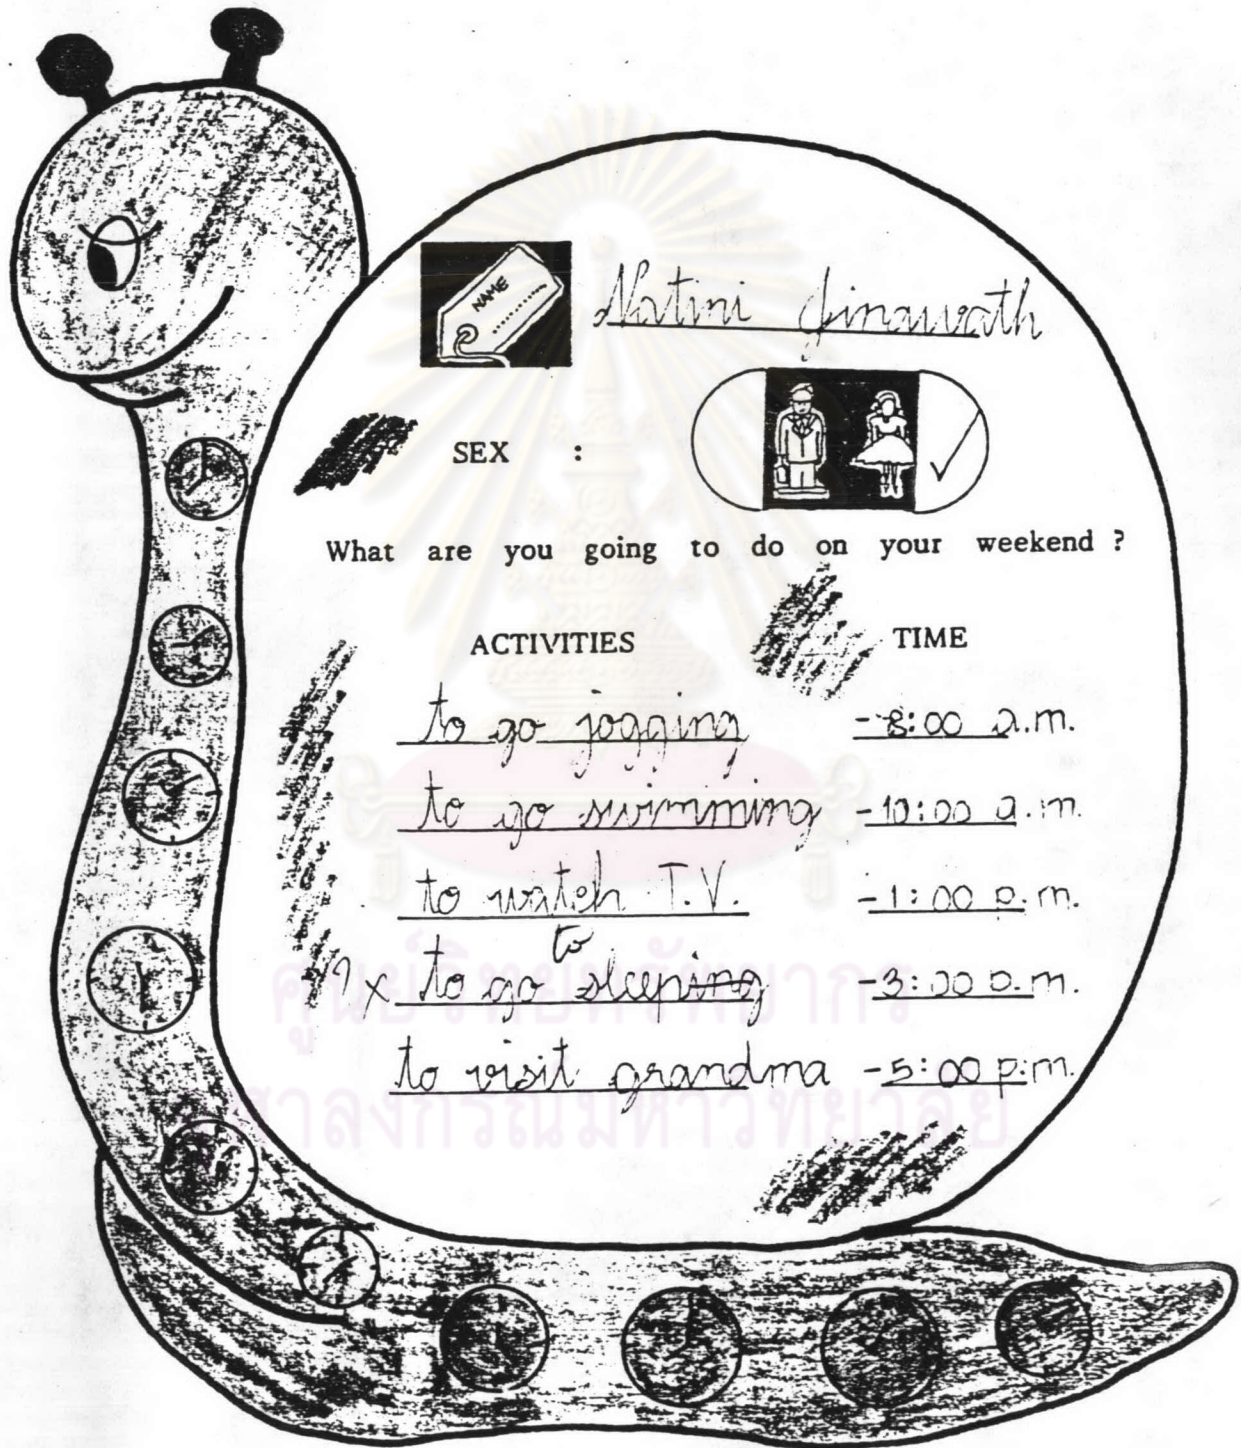 NAME
Natini Jinawath
SEX :
What are you going to do on your weekend ?
ACTIVITIES TIME
to go jogging - 8:00 a.m.
to go swimming - 10:00 a.m.
to watch T.V. - 1:00 p.m.
to
x to go sleeping - 3:00 p.m.
to visit grandma - 5:00 p.m.
ศูนย์วิทยทรัพยากร
จุฬาลงกรณ์มหาวิทยาลัย